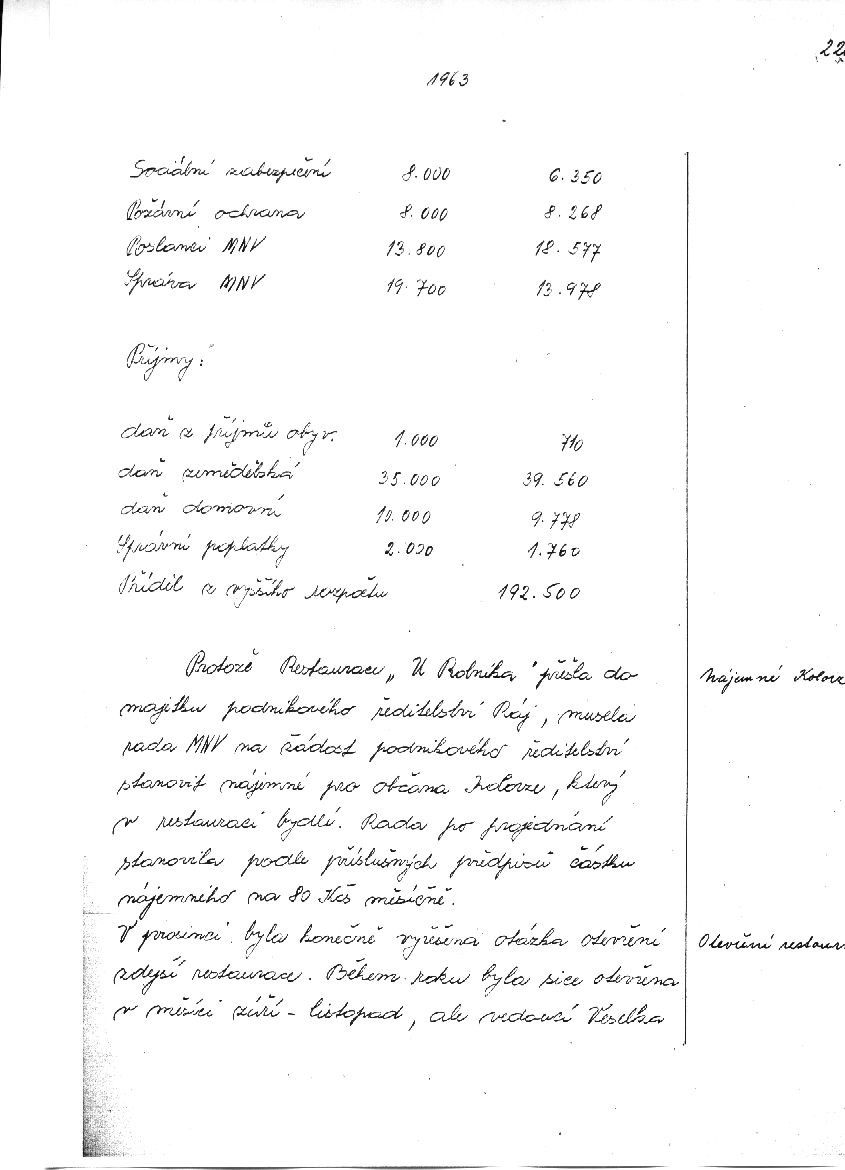 1963
Sociální zabezpečení 8.000 6.350
Požární ochrana 8.000 8.268
Poslanci MNV 13.800 18.577
Správa MNV 19.700 13.978
Příjmy:
daň z příjmů obyv. 1.000 710
daň zemědělská 35.000 39.560
daň domovní 10.000 9.778
Správní poplatky 2.000 1.760
Příděl z vyššího rozpočtu 192.500
Protože Restaurace „U Rolníka" přešla do
majetku podnikového ředitelství Ráj, musela
rada MNV na žádost podnikového ředitelství
stanovit nájemné pro občana Kolovze, který
v restauraci bydlí. Rada po projednání
stanovila podle příslušných předpisů částku
nájemného na 80 Kčs měsíčně.
V prosinci byla konečně vyřešena otázka otevření
zdejší restaurace. Během roku byla sice otevřena
v měsíci září – listopad, ale vedoucí Veselka
Nájemné
Otevření restaur